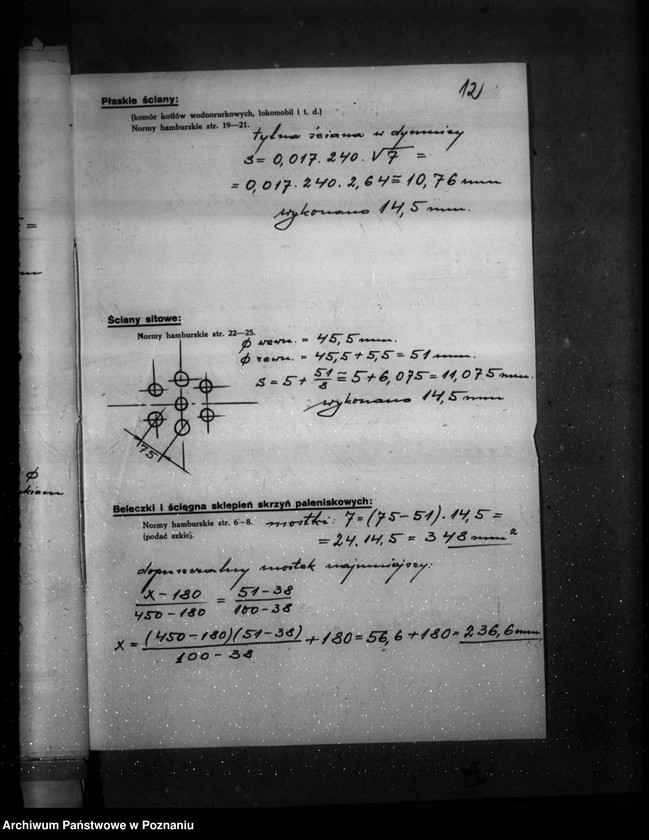 12
Płaskie ściany:
(komór kotłów wodnorurkowych, lokomobil i t. d.)
Normy hamburskie str. 19—21.
tylna ściana w dymnicy
s = 0,017 . 240 . √7 =
= 0,017 . 240 . 2,64 = 10,76 mm
wykonano 14,5 mm.
Ściany sitowe:
Normy hamburskie str. 22—25.
ϕ wewn. = 45,5 mm.
ϕ zewn. = 45,5 + 5,5 = 51 mm.
s = 5 + 51/8 ≅ 5 + 6,075 = 11,075 mm.
wykonano 14,5 mm
75
Beleczki i ścięgna sklepień skrzyń paleniskowych:
Normy hamburskie str. 6—8.
(podać szkic).
mostki: 7 = (75 – 51) . 14,5 =
= 24 . 14,5 = 348 mm²
dopuszczalny mostek najmniejszy:
x – 180 / 450 – 180 = 51 – 38 / 100 – 38
x = (450 – 180)(51 – 38) / 100 – 38 + 180 = 56,6 + 180 = 236,6 mm
ϕ
Archiwum Państwowe w Poznaniu